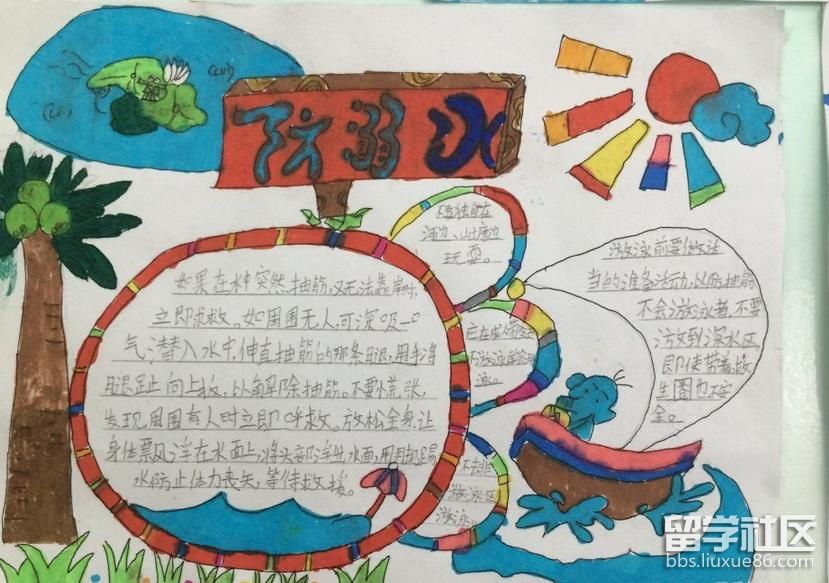 防溺水
不要独自在
河边、山塘边
玩耍。
如果在水中突然抽筋,又无法靠岸时,
立即求救。如周围无人,可深吸一口
气潜入水中,伸直抽筋的那条腿,用手将
腿趾向上扳,以解除抽筋。不要慌张,
发现周围有人时立即呼救。放松全身,让
身体票风浮在水面上,将头部浮出水面,用脚踢
水,防止体力丧失,等待救援。
游泳前要做适
当的准备活动,以防抽筋
不会游泳者,不要
游到深水区,
即使带着救
生圈也不安
全。
应在成人带
下游泳学会
泳。
不去非
游泳区
游泳。
留学社区
bbs.liuxue86.com